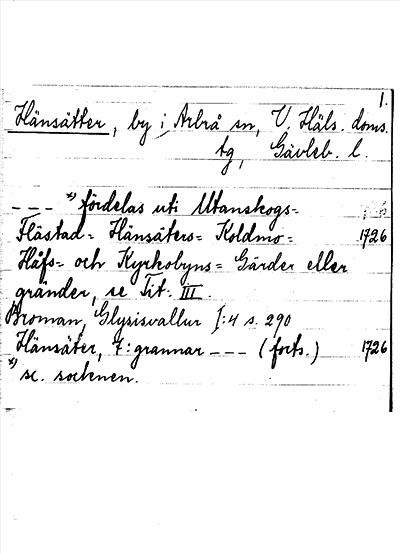 1.
Hänsätter, by i Arbrå sn, V. Häls. doms.
tg, Gävleb. l.
--- *) fördelas uti Utanskogs=
Flästad= Hänsäters= Koldmo= 1726
Håfs= och Kyrkobyns= Gärder eller
gränder, se Tit: III.
Broman, Glysisvallur I:4 s. 290
Hänsäter, 7: grannar --- (forts.) 1726
*) sc. socknen.